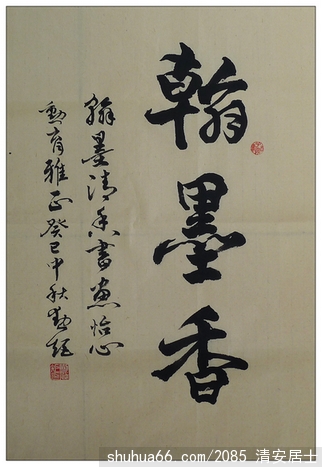 翰墨香
翰墨清香書畫怡心
勳育雅正癸巳中秋勁超
shuhua66.com/2085 清安居士